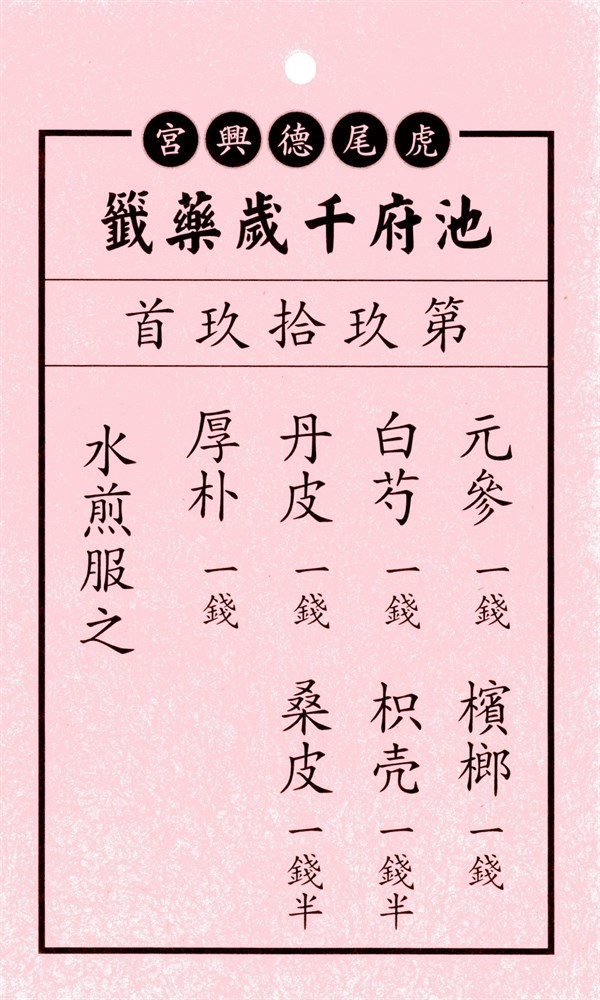 虎尾德興宮
池府千歲藥籤
第玖拾玖首
元參一錢 檳榔一錢
白芍一錢 枳壳一錢半
丹皮一錢 桑皮一錢半
厚朴一錢
水煎服之